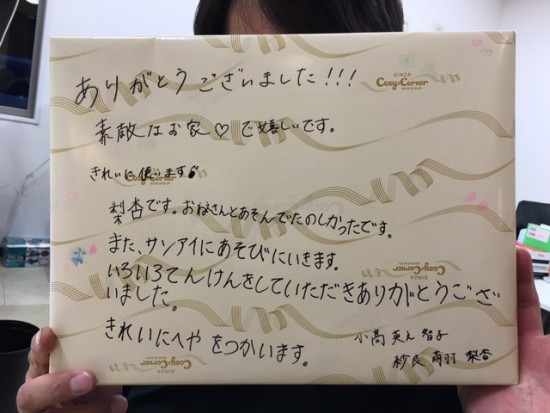 GINZA
Cozy Corner
ありがとうございました!!!
素敵なお家♡で嬉しいです。
きれいに使います♪
梨杏です。おねえさんとあそんでたのしかったです。
また、サンアイにあそびにいきます。
いろいろてんけんをしていただきありがとうござ
いました。
きれいにへやをつかいます。
小高 英 智子
紗良 雨羽 梨杏
Cozy Corner
GINZA
Cozy Corner